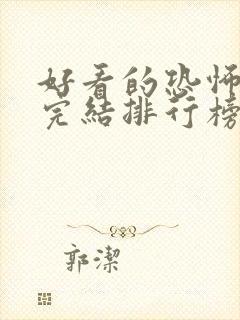 好看的恐怖
完結排行榜
郭潔